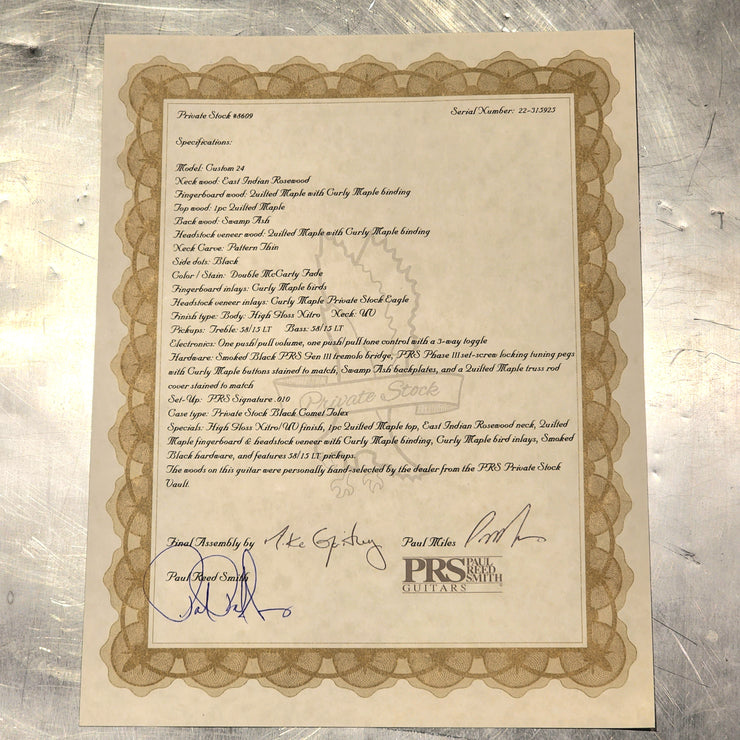 Private Stock #8609
Serial Number: 22-315925
Specifications:
Model: Custom 24
Neck wood: East Indian Rosewood
Fingerboard wood: Quilted Maple with Curly Maple binding
Top wood: 1pc Quilted Maple
Back wood: Swamp Ash
Headstock veneer wood: Quilted Maple with Curly Maple binding
Neck Carve: Pattern Thin
Side dots: Black
Color / Stain: Double McCarty Fade
Fingerboard inlays: Curly Maple birds
Headstock veneer inlays: Curly Maple Private Stock Eagle
Finish type: Body: High Gloss Nitro Neck: UV
Pickups: Treble: 58/15 LT Bass: 58/15 LT
Electronics: One push/pull volume, one push/pull tone control with a 3-way toggle
Hardware: Smoked Black PRS Gen III tremolo bridge, PRS Phase III set-screw locking tuning pegs
with Curly Maple buttons stained to match, Swamp Ash backplates, and a Quilted Maple truss rod
cover stained to match
Set-Up: PRS Signature .010
Case type: Private Stock Black Comet Tolex
Specials: High Gloss Nitro/UV finish, 1pc Quilted Maple top, East Indian Rosewood neck, Quilted
Maple fingerboard & headstock veneer with Curly Maple binding, Curly Maple bird inlays, Smoked
Black hardware, and features 58/15 LT pickups.
The woods on this guitar were personally hand-selected by the dealer from the PRS Private Stock
Vault.
Private Stock
Final Assembly by Mike Paul Miles
Paul Reed Smith
PRS PAUL REED SMITH
GUITARS